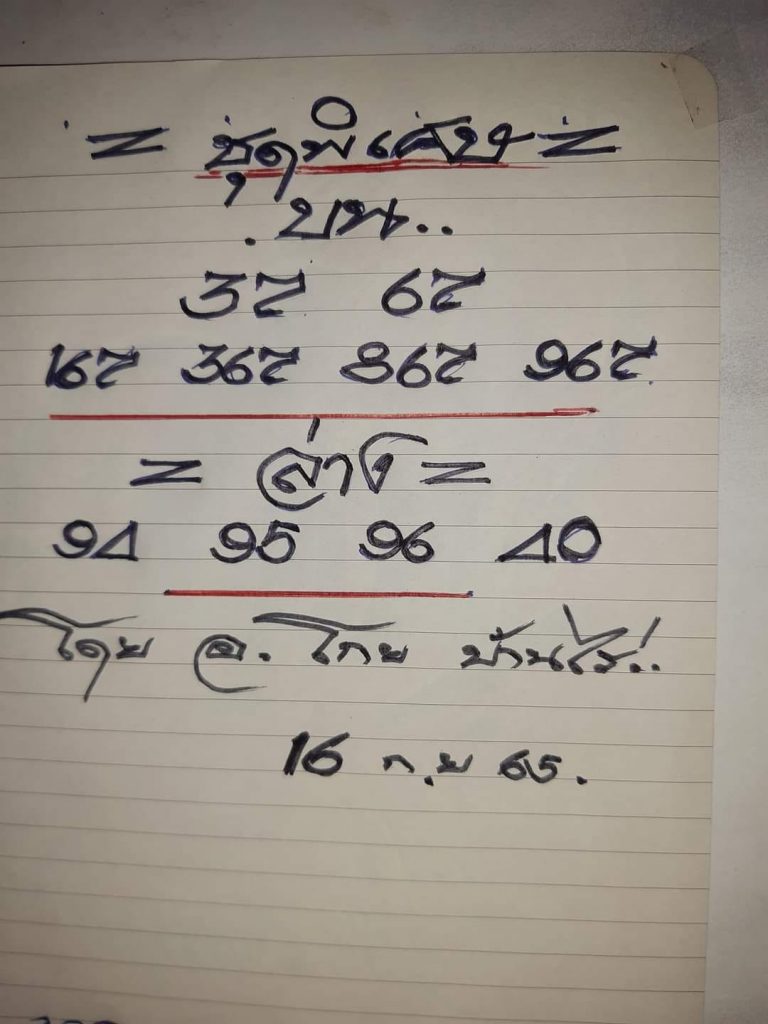 = ชุดพิเศษ =
. บน..
37 67
167 367 867 967
= ล่าง =
94 95 96 40
โดย อ. โกย บ้านไร่..
16 ก.ย 65.